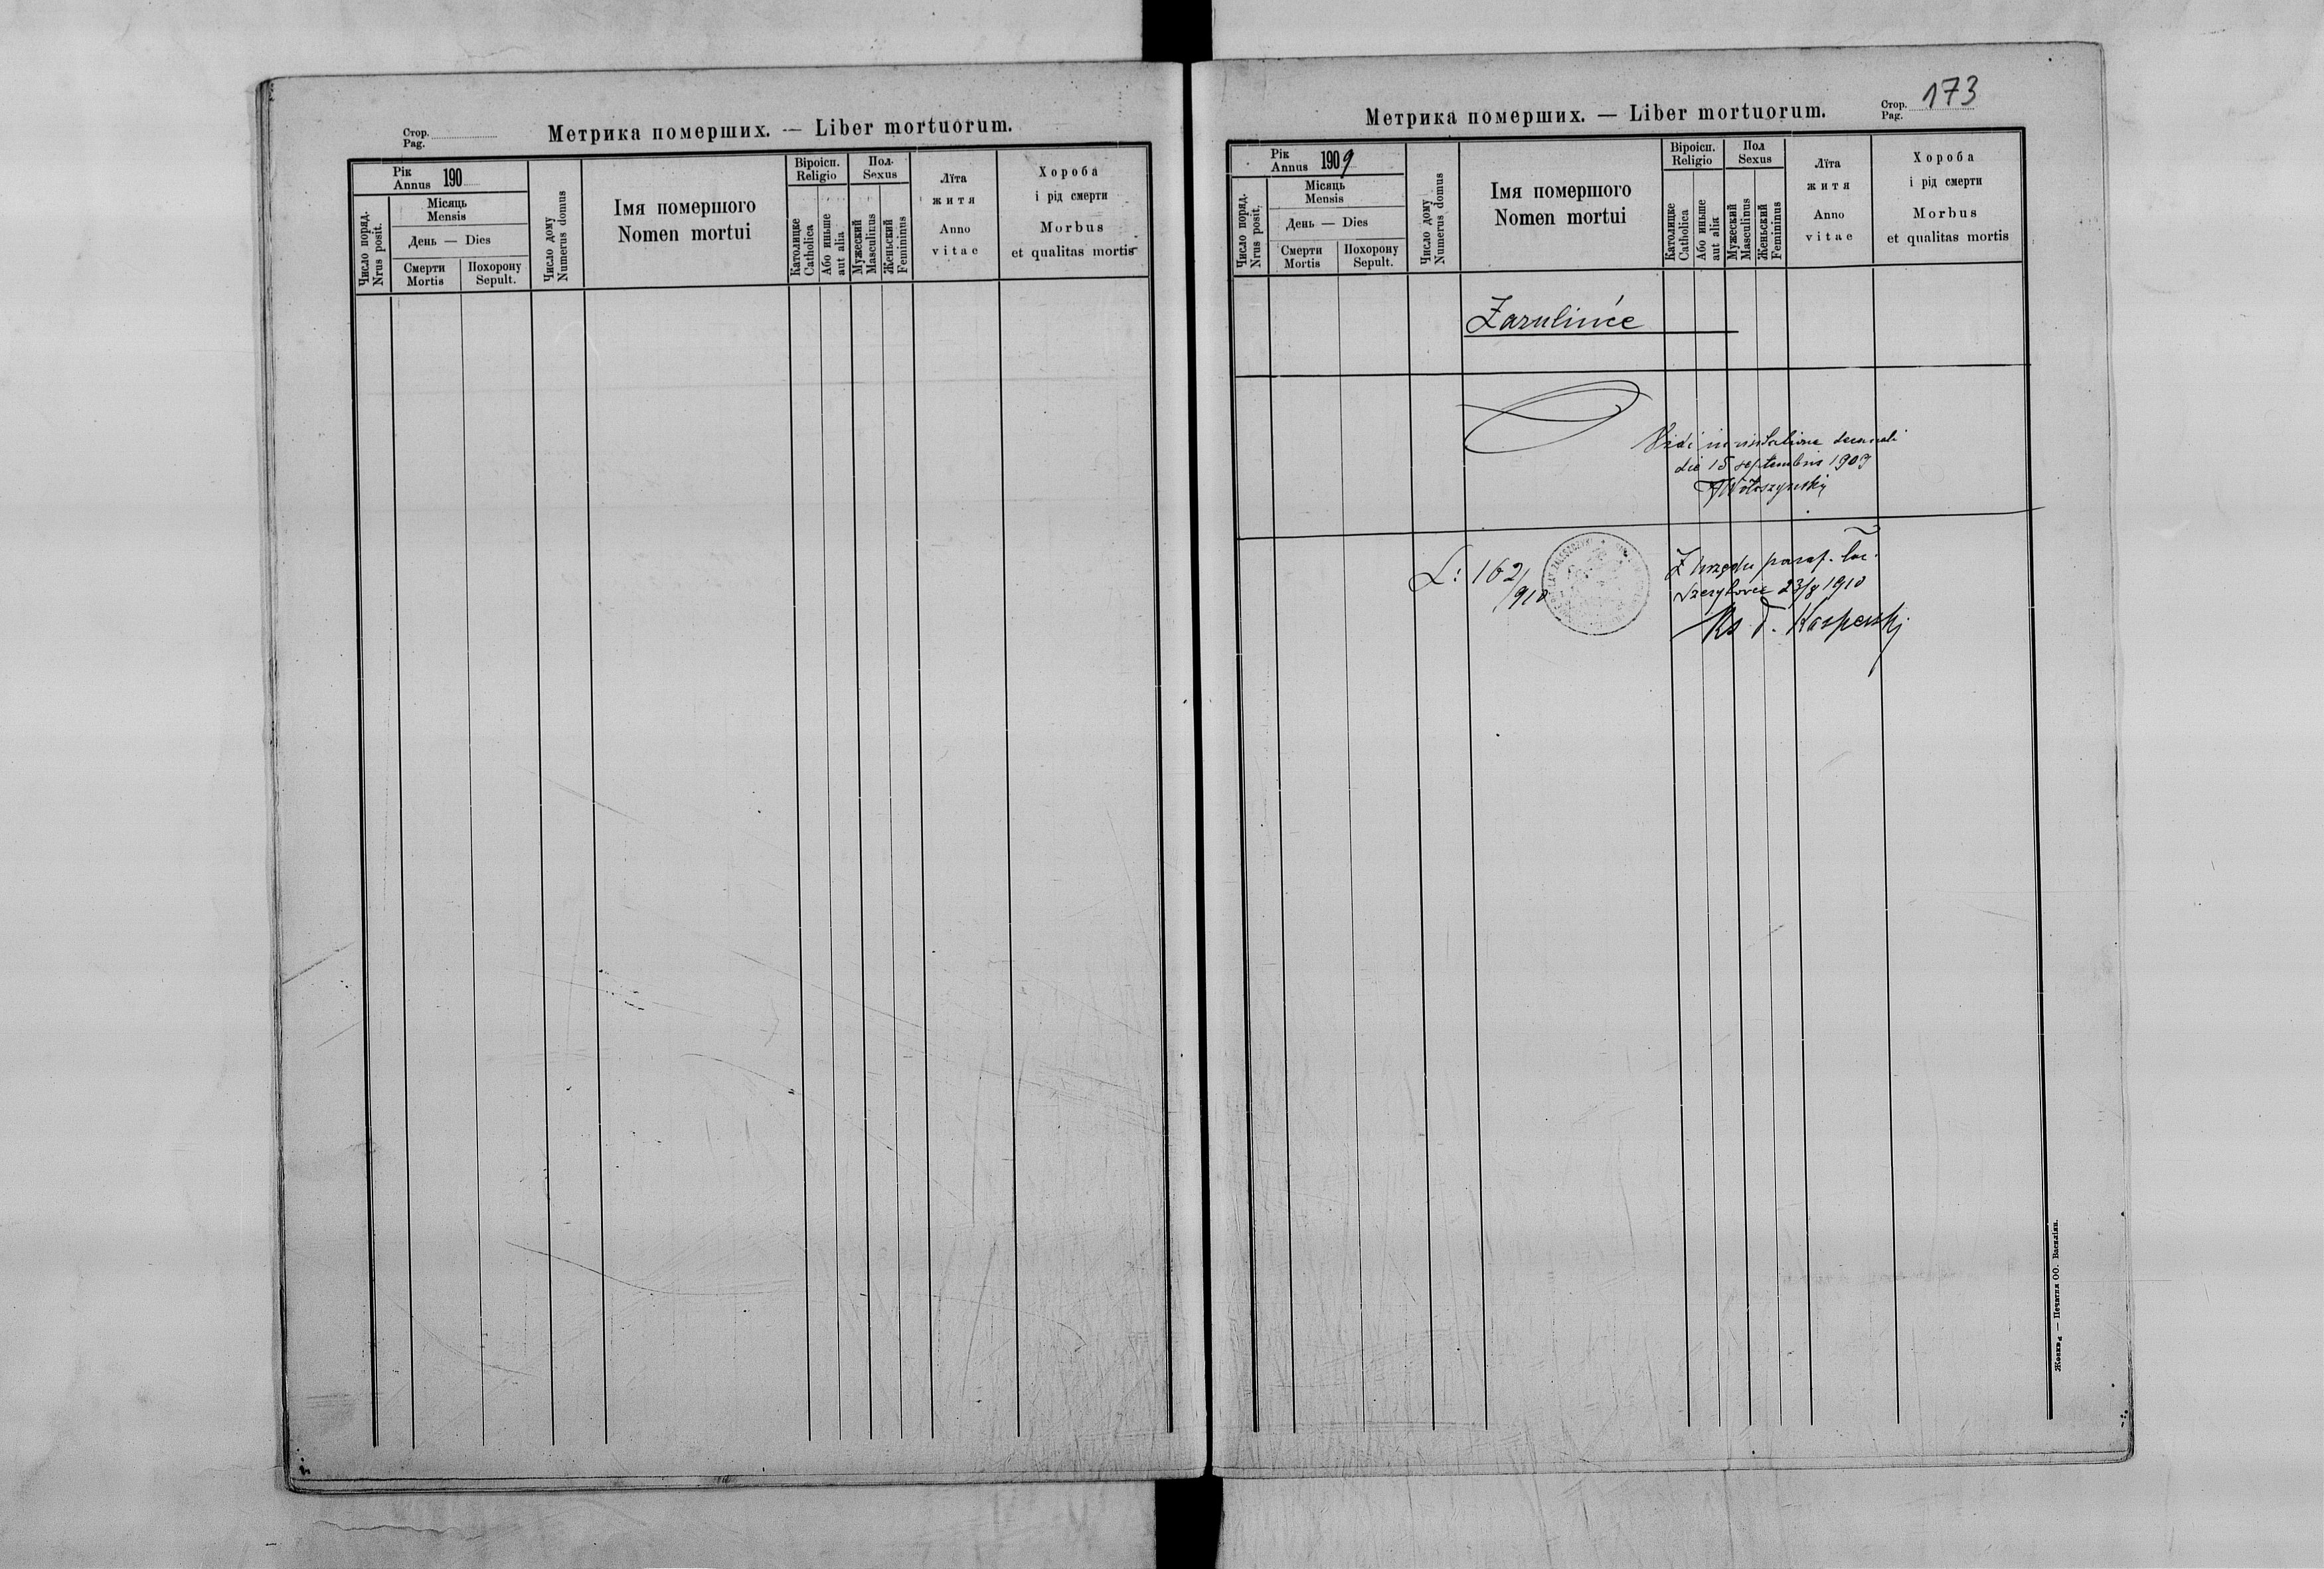 Стор.
Pag.
Метрика померших. — Liber mortuorum.
Рік
Annus 190
Місяць
Mensis
День — Dies
Смерти
Mortis
Похорону
Sepult.
Число поряд.
Nrus posit.
Число дому
Numerus domus
Імя помершого
Nomen mortui
Віроісп.
Religio
Католицке
Catholica
Або иньше
aut alia
Пол
Sexus
Мужеский
Masculinus
Женьский
Femininus
Лїта
житя
Anno
vitae
Хороба
і рід смерти
Morbus
et qualitas mortis
Стор.
Pag. 173
Метрика померших. — Liber mortuorum.
Рік
Annus 1909
Місяць
Mensis
День — Dies
Смерти
Mortis
Похорону
Sepult.
Число поряд.
Nrus posit.
Число дому
Numerus domus
Імя помершого
Nomen mortui
Віроісп.
Religio
Католицке
Catholica
Або иньше
aut alia
Пол
Sexus
Мужеский
Masculinus
Женьский
Femininus
Лїта
житя
Anno
vitae
Хороба
і рід смерти
Morbus
et qualitas mortis
Zazulińce
Vidi in visitatione decanali
die 15 septembris 1909
Wołoszyński
L: 162/910
Z urzędu paraf. łac.
23/8 1910
Ks. J. Kasperski
Жовква — Печатня ОО. Василіян.